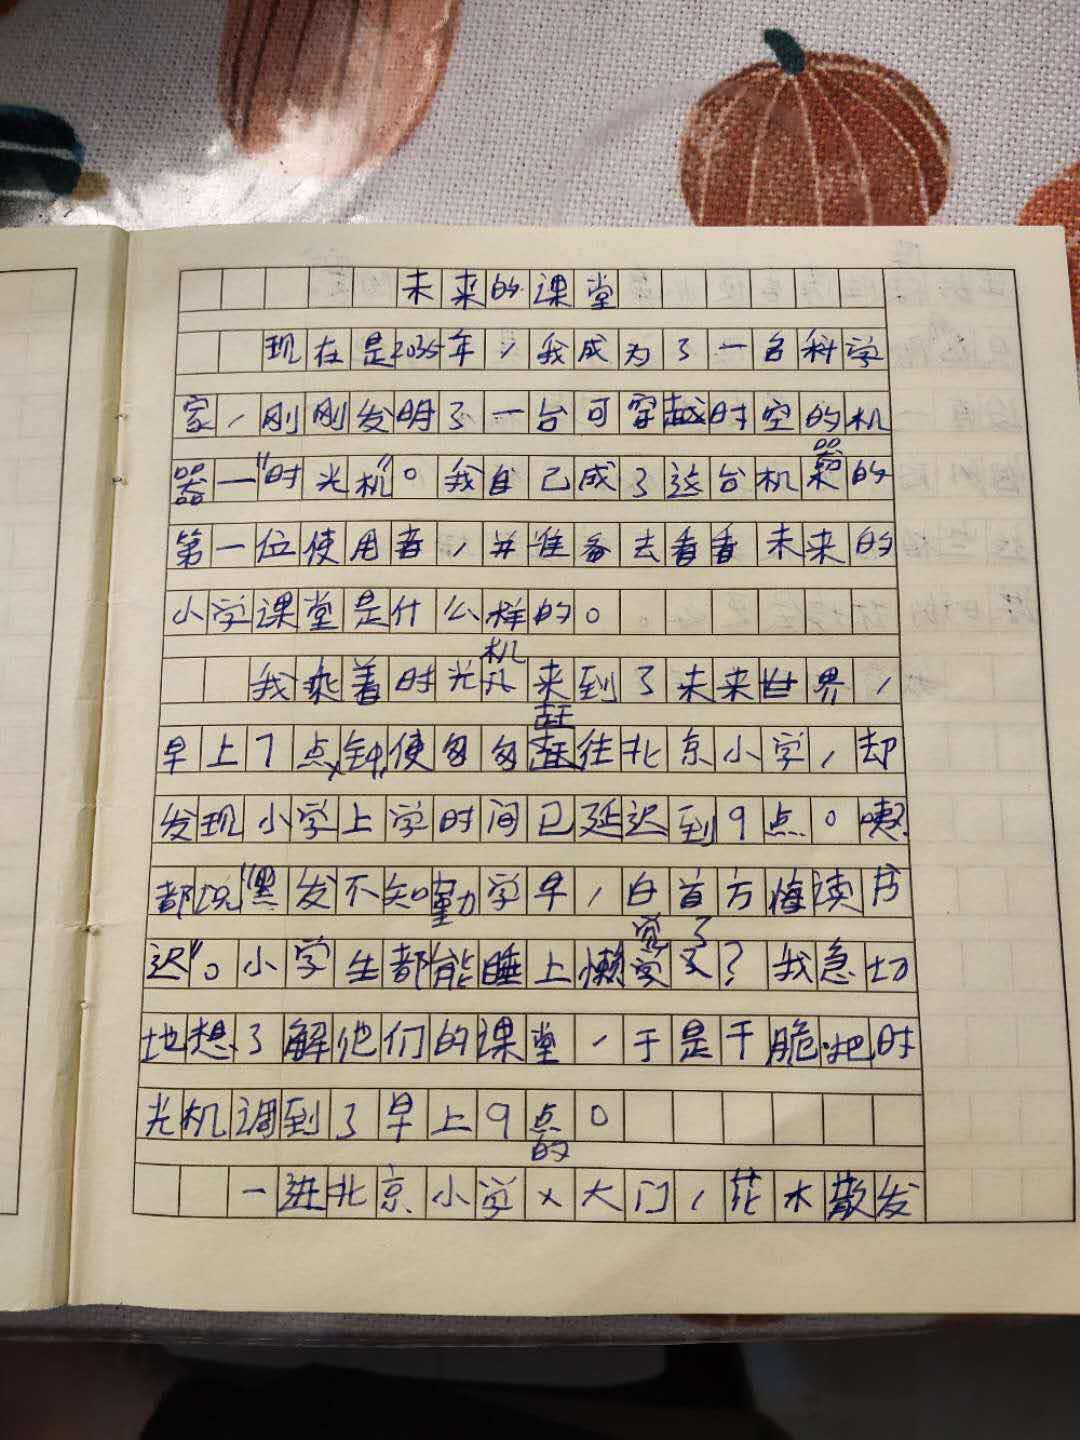 未来的课堂
现在是2035年，我成为了一名科学
家，刚刚发明了一台可穿越时空的机
器—“时光机”。我自己成了这台机器的
第一位使用者，并准备去看看未来的
小学课堂是什么样的。
我乘着时光机来到了未来世界，
早上7点钟，便匆匆赶往北京小学，却
发现小学上学时间已延迟到9点。咦
都说“黑发不知勤学早，白首方悔读书
迟”。小学生都能睡上懒觉了？我急切
地想了解他们的课堂，于是干脆把时
光机调到了早上9点。
一进北京小学的大门，花木散发